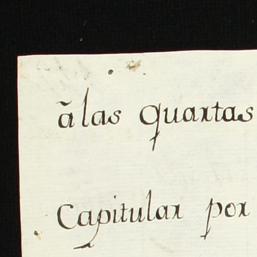 ã las quartas
Capitular por